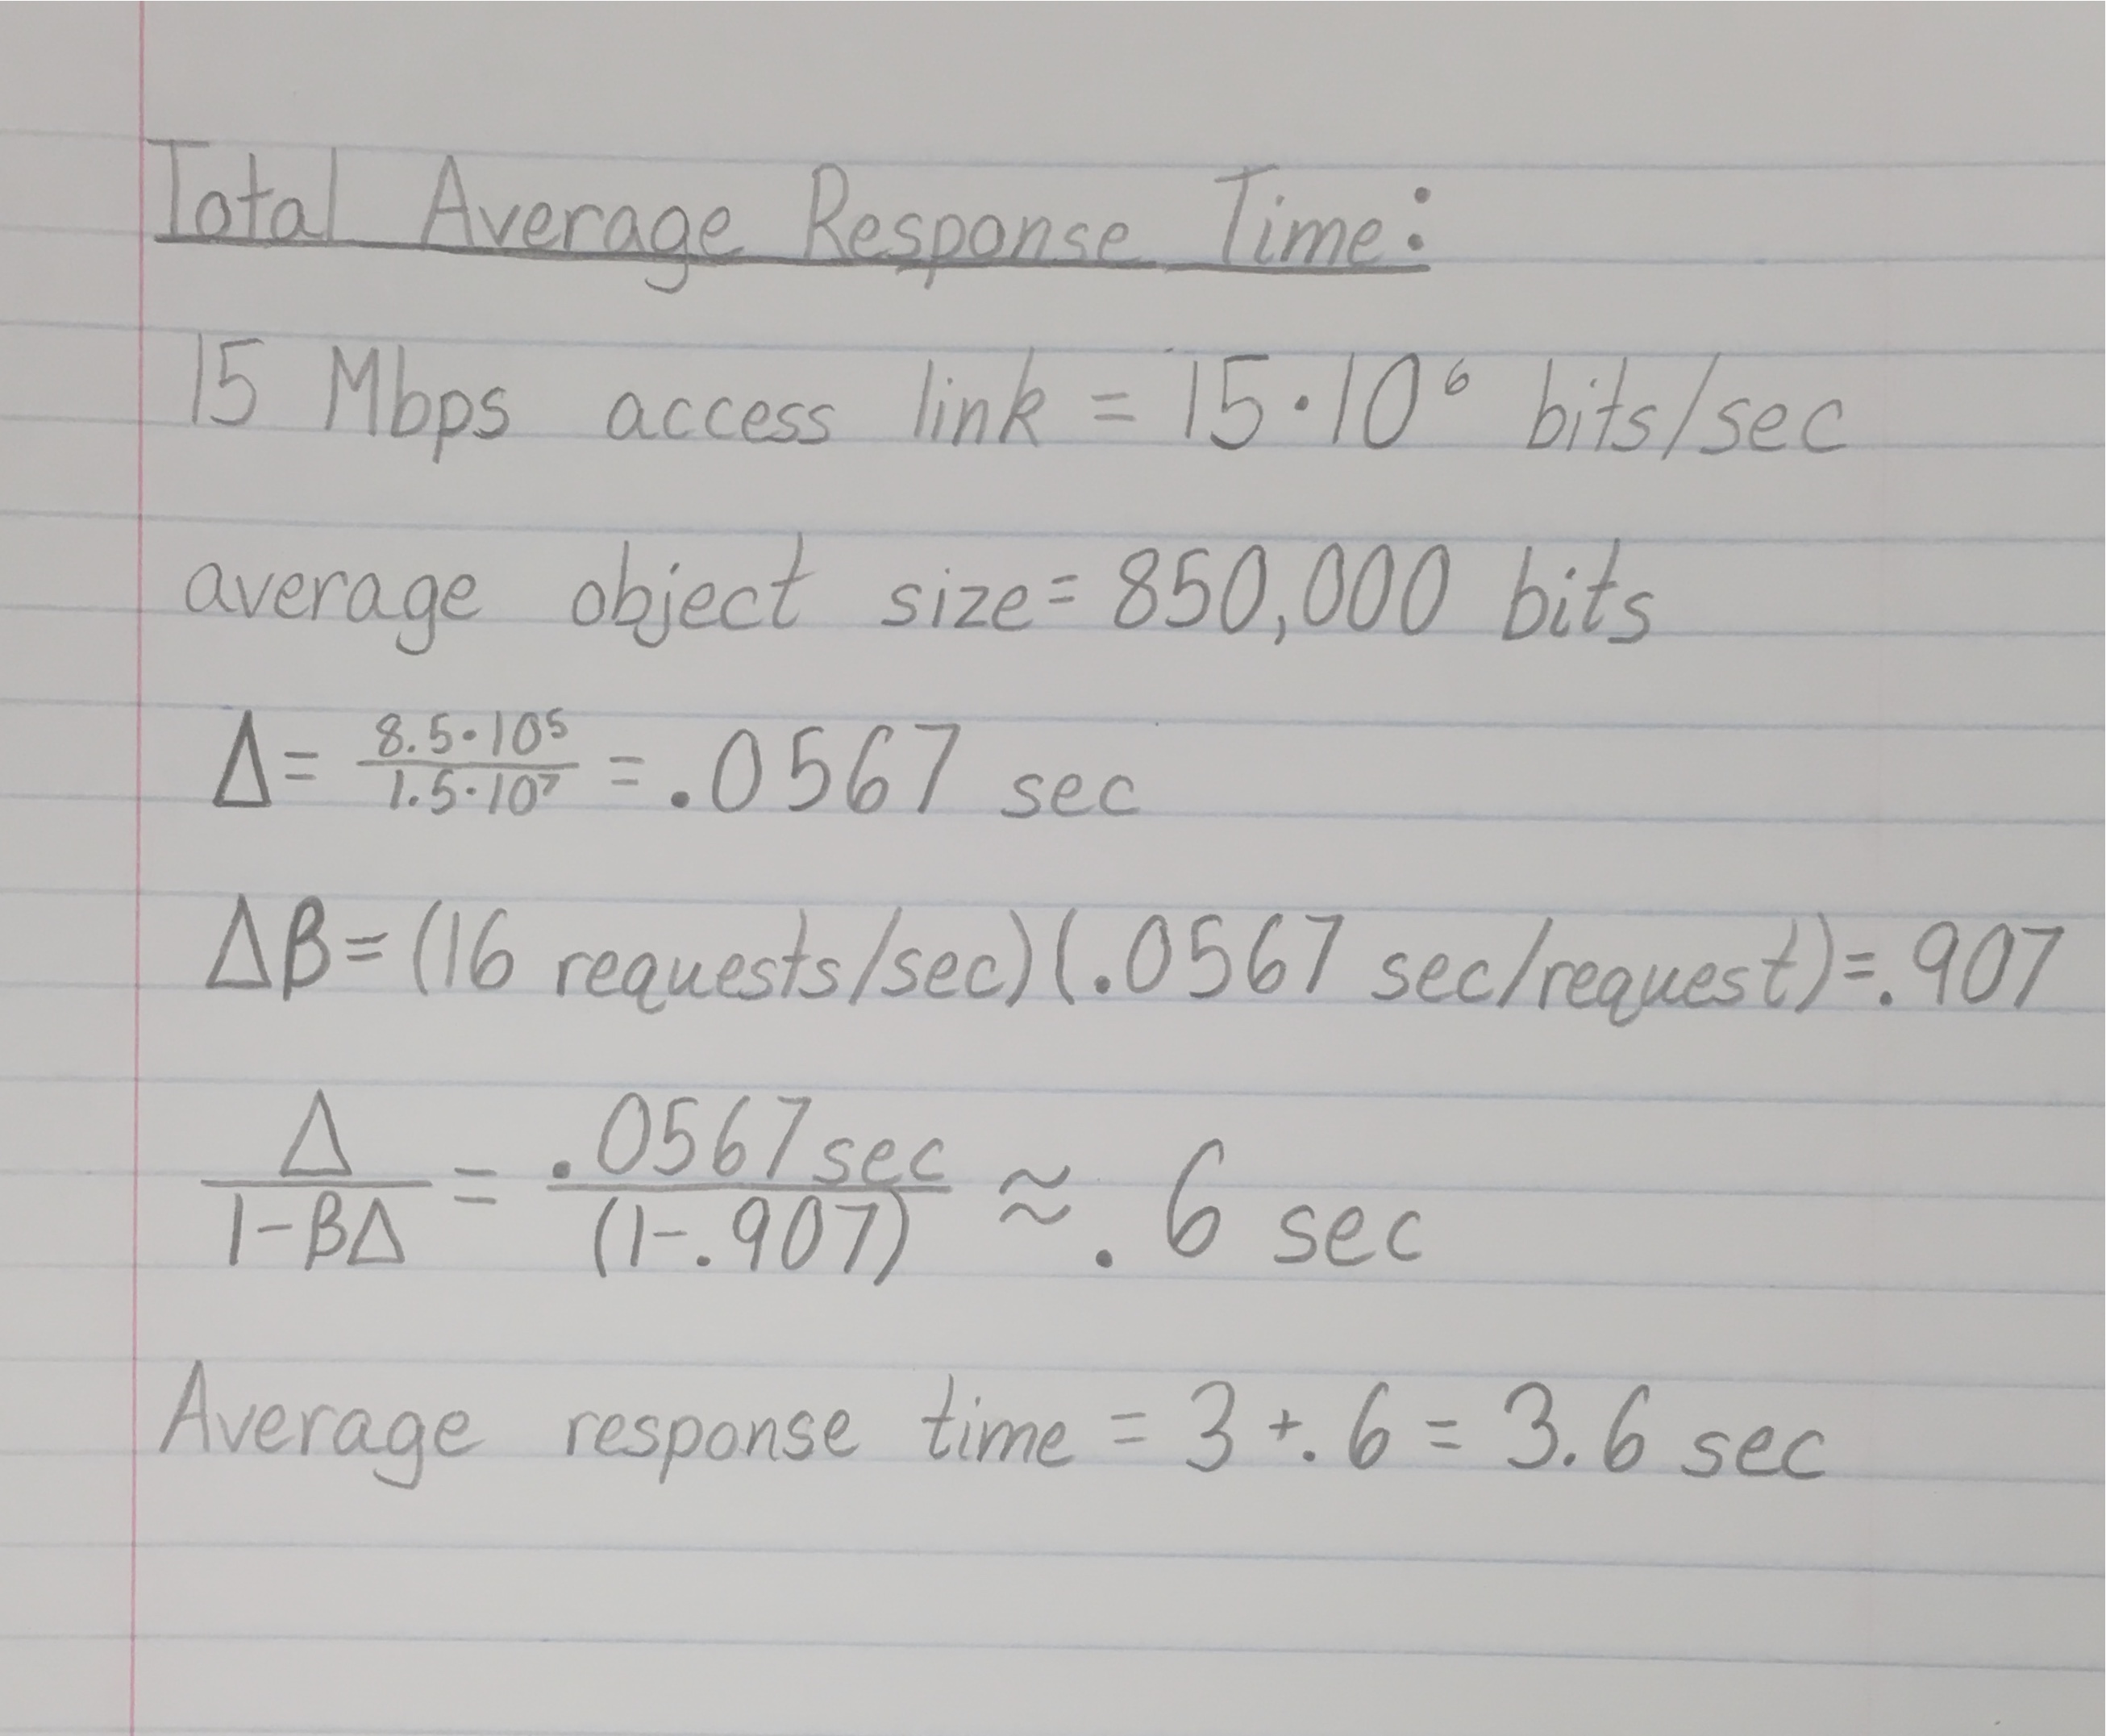 Total Average Response Time:
15 Mbps access link = 15·10⁶ bits/sec
average object size = 850,000 bits
Δ = 8.5·10⁵ / 1.5·10⁷ = .0567 sec
Δβ = (16 requests/sec)(.0567 sec/request) = .907
Δ / 1-βΔ = .0567 sec / (1-.907) ≈ .6 sec
Average response time = 3 + .6 = 3.6 sec